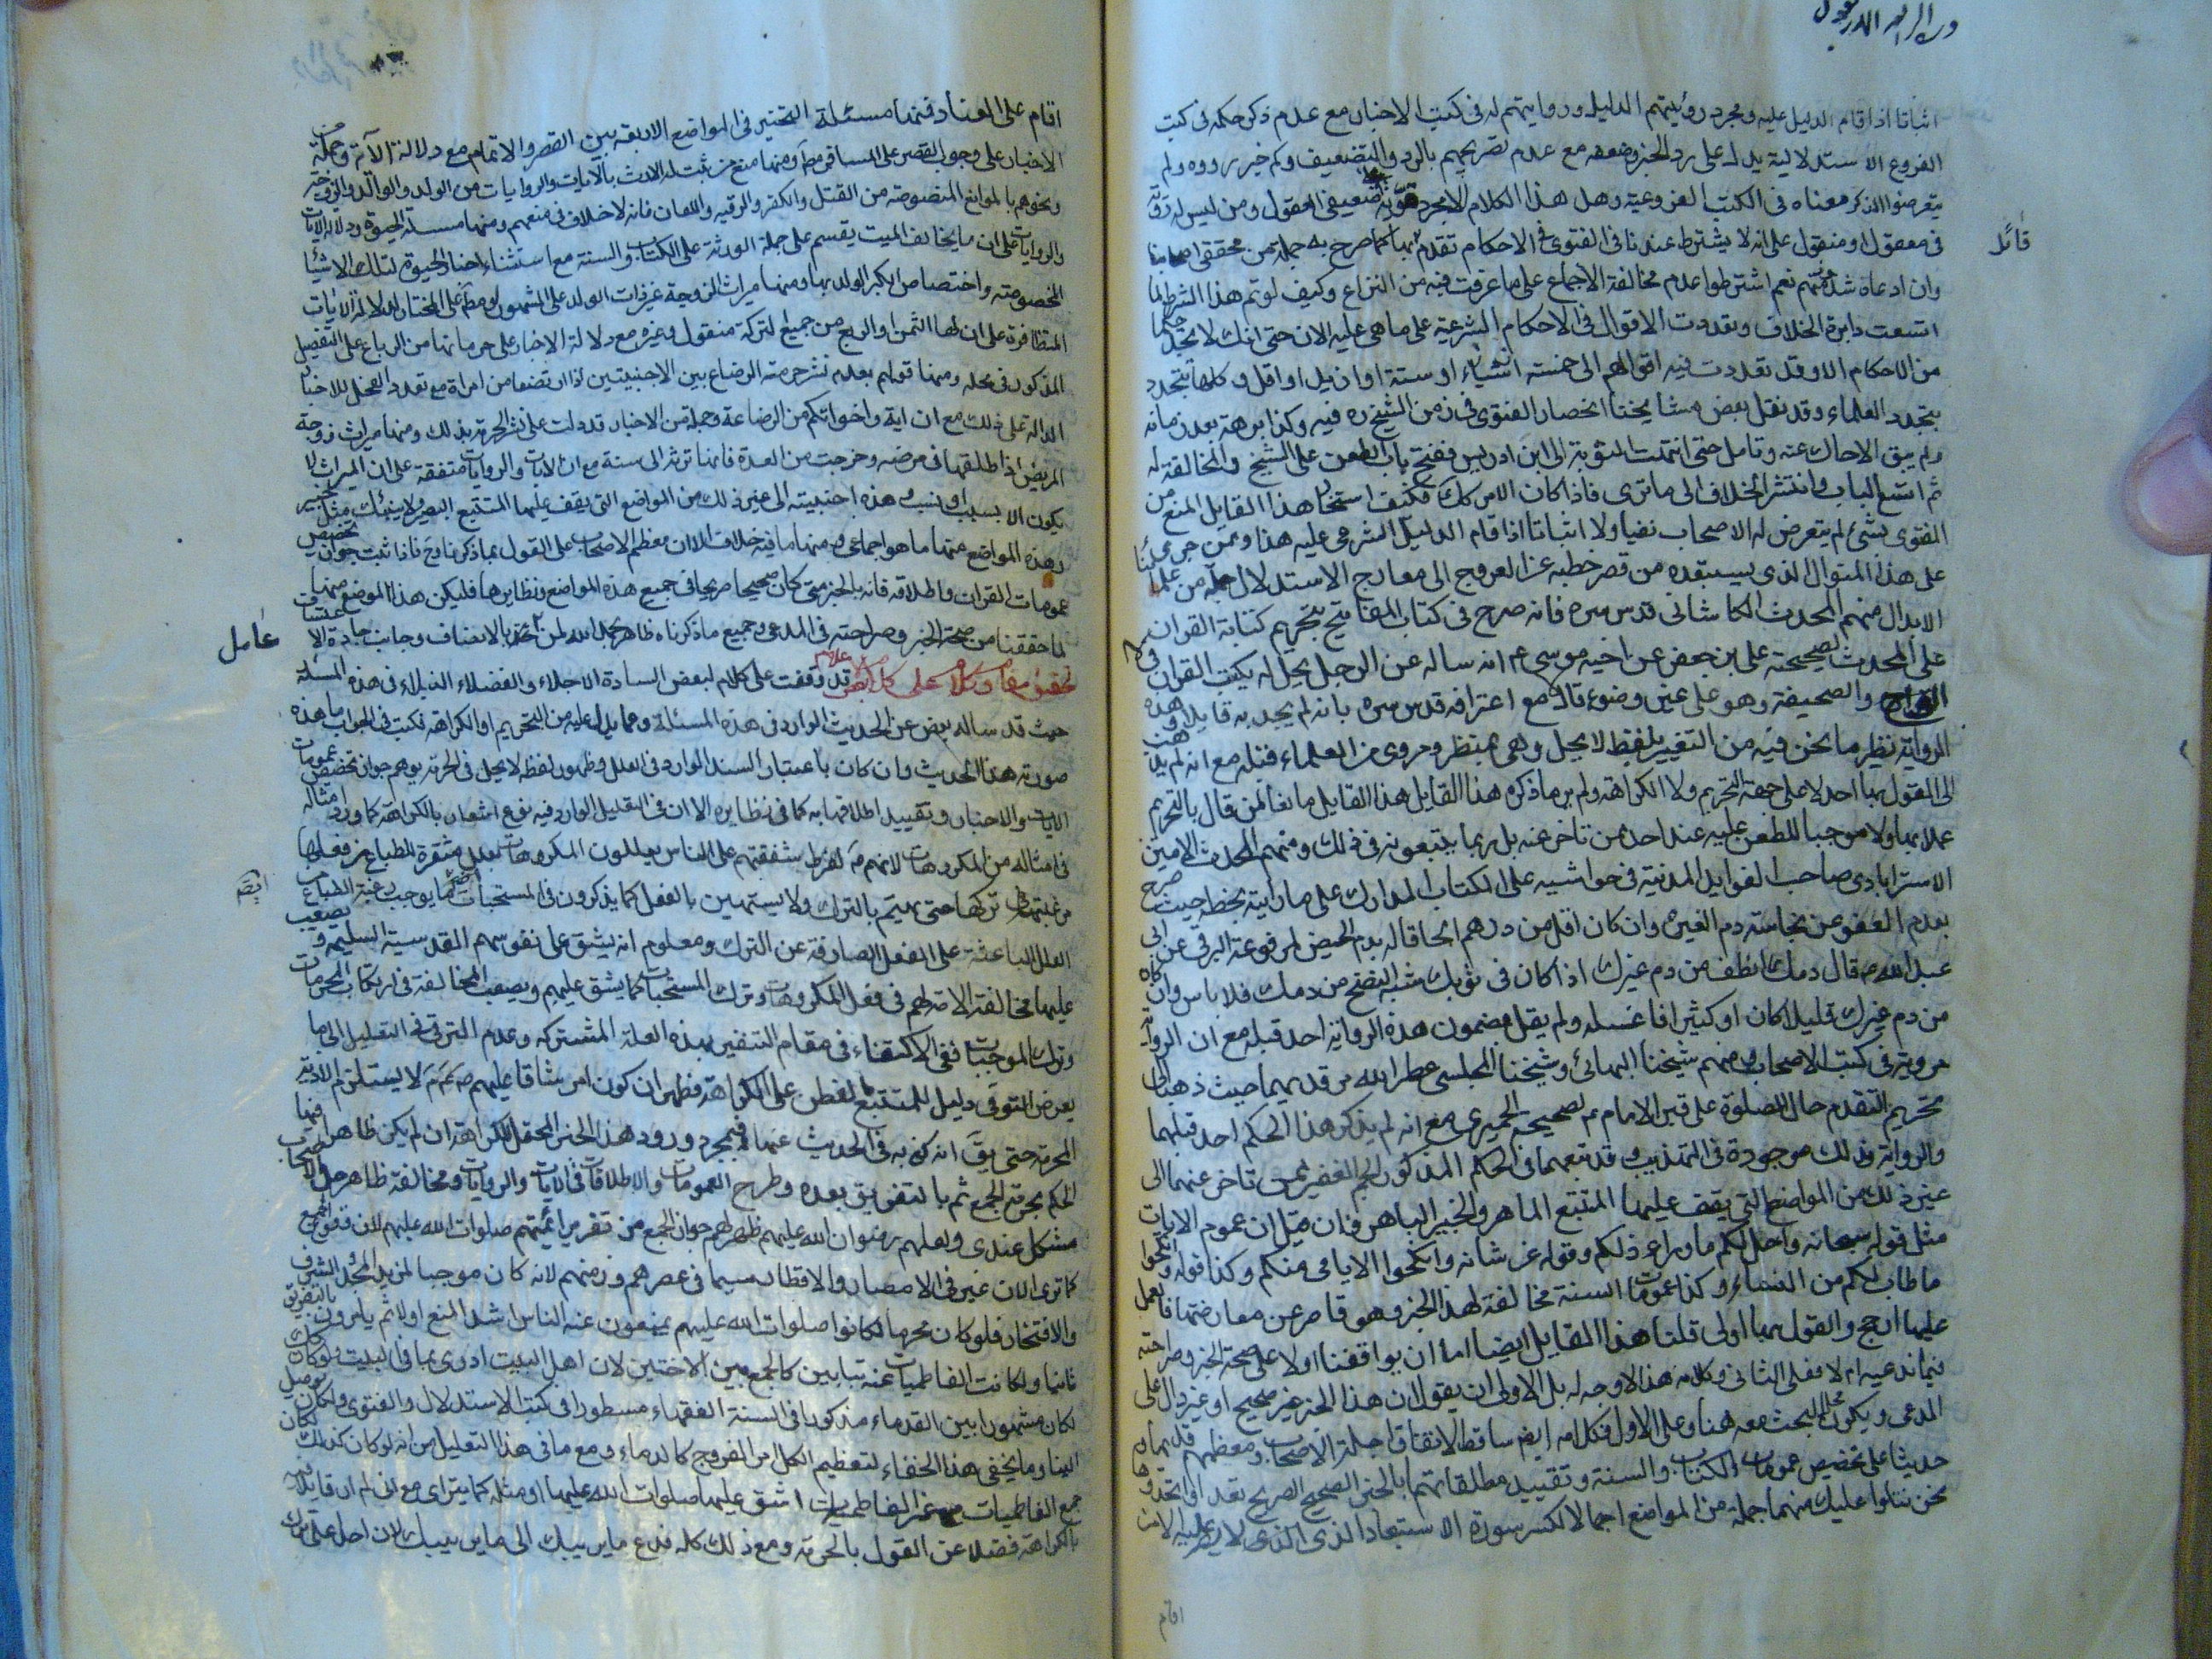 اثباتا اذا اقام الدليل عليه ومجرد رؤيتهم الدليل وروايتهم له في كتب الاخبار مع عدم ذكر حكمه في كتب
الفروع الاستدلالية يدل على رد الخبر وضعفه مع عدم تصريحهم بالرد والتضعيف وكم خبر رووه ولم
يتعرضوا لذكر معناه في الكتب الفروعية وهل هذا الكلام الا مجرد ضعيفي العقول ومن ليس له روية
قائل
في معقول او منقول على انه لا يشترط عندنا في الفتوى في الاحكام تقدم كما صرح به جملة من محققي اصحابنا
وان ادعاه شذ منهم نعم اشترطوا عدم مخالفة الاجماع على ما عرفت فيه من النزاع وكيف لو تم هذا الشرط لما
اتسعت دايرة الخلاف وتعددت الاقوال في الاحكام الشرعية على ما هي عليه الان حتى انك لا تجد حكما
من الاحكام الا وقد تعددت فيه اقوالهم الى خمسة اشياء او ستة او ازيد او اقل وكلها تتجدد
بتجدد العلماء وقد نقل بعض مشايخنا انحصار الفتوى في زمن الشيخ ره فيه وكذا برهة بعد زمانه
ولم يبق الا حاك عنه وناقل حتى انتهت النوبة الى ابن ادريس ففتح باب الطعن على الشيخ والمخالفة له
ثم اتسع الباب وانتشر الخلاف الى ما ترى فاذا كان الامر كك فكيف استجاز هذا القايل المنع من
الفتوى بشئ لم يتعرض له الاصحاب نفيا ولا اثباتا اذا قام الدليل الشرعي عليه هذا وممن جرى
على هذا المنوال الذي يستبعده من قصر خطبه عن العروج الى معارج الاستدلال جملة من علمائنا
الابدال منهم المحدث الكاشاني قدس سره فانه صرح في كتاب المفاتيح بتحريم كتابة القران
على المحدث لصحيحة علي بن جعفر عن اخيه موسى ع انه ساله عن الرجل يحل له يكتب القران في
الالواح والصحيفة وهو على غير وضوء قال لا مع اعترافه قدس سره بانه لم يجد به قايلا وهذه
الرواية نظير ما نحن فيه من التغيير بلفظ لا يحل وهي بمنظر ومروى من العلماء قبله مع انه لم يذهب
الى القول بها احد لا على جهة التحريم ولا الكراهة ولم ير ما ذكره هذا القايل مانعا لمن قال بالتحريم
عملا بها ولا موجبا للطعن عليه عند احد ممن تاخر عنه بل ربما يتبعونه في ذلك ومنهم المحدث الامين
الاسترابادي صاحب الفوايد المدنية في حواشيه على الكتاب المدارك على ما رايته بخطه حيث صرح
بعدم العفو عن نجاسة دم الغير وان كان اقل من درهم الحاقا له بدم الحيض لمرفوعة البرقي عن ابي
عبد الله ع قال دمك انظف من دم غيرك اذا كان في ثوبك شبه النضح من دمك فلا باس وان كان
من دم غيرك قليلا كان او كثيرا فاغسله ولم يقل بمضمون هذه الرواية احد قبله مع ان الرواية
مروية في كتب الاصحاب ومنهم شيخنا البهائي وشيخنا المجلسي عطر الله مرقديهما حيث ذهبا الى
تحريم التقدم حال الصلوة على قبر الامام ع لصحيحة الحميري مع انه لم يذكر هذا الحكم احد قبلهما
والرواية كذلك موجودة في التهذيب وقد تبعهما في الحكم المذكور الجم الغفير ممن تاخر عنهما الى
غير ذلك من المواضع التي يقف عليها المتتبع الماهر والخبير الباهر فان قيل ان عموم الايات
مثل قوله سبحانه واحل لكم ما وراء ذلكم وقوله عز شانه وانكحوا الايامى منكم وكذا قوله وانكحوا
ما طاب لكم من النساء وكذا عمومات السنة مخالفة لهذا الخبر وهو قاصر عن معارضتها فالعمل
عليها ارجح والقول بها اولى قلنا هذا القايل ايضا اما ان يوافقنا اولا على صحة الخبر وصراحته
فيما ندعيه ام لا فعلى الثاني وكلامه هذا لا وجه له بل الاولى ان يقول ان هذا الخبر غير صحيح او غير دال على
المدعى ويكون محل البحث معه هنا وعلى الاول فكلامه ايضا ساقط لاتفاق اجلة الاصحاب ومعظمهم قديما
حديثا على تخصيص عمومات الكتاب والسنة وتقييد مطلقاتهما بالخبر الصحيح الصريح تعدد او اتحد وها
نحن نتلوا عليك منهما جملة من المواضع اجمالا لكسر سورة الاستبعاد الذي
اقام
اقام على العناد فمنها مسئلة التخيير في المواضع الاربعة بين القصر والاتمام مع دلالة الآية وجملة من
الاخبار على وجوب القصر على المسافر مط ومنها منع من ثبت له الارث بالايات والروايات من الولد والوالد والزوجة
ونحوهم بالموانع المنصوصة من القتل والكفر والرقية واللعان فانه لا خلاف في منعهم ومنها مسئلة الحبوة ودلالة الايات
والروايات على ان ما يخالف الميت يقسم على جملة الورثة على الكتاب والسنة مع استثناء اخبار الحبوة لتلك الاشيا
المخصوصة واختصاص الاكبر الولد بها ومنها ميراث الزوجة غير ذات الولد على المشهور او مط على المختار لدلالة الايات
المتظافرة على ان لها الثمن او الربع من جميع التركة منقول وغيره مع دلالة الاخبار على حرمانها من الرباع على التفصيل
المذكور في محله ومنها قولهم بعدم نشر حرمة الرضاع بين الاجنبيين اذا ارتضعا من امراة مع تعدد الفحل للاخبار
الدالة على ذلك مع ان اية واخواتكم من الرضاعة وجملة من الاخبار قد دلت على نشر الحرمة بذلك ومنها ميراث زوجة
المريض اذا طلقها في مرضه وخرجت من العدة فانها ترثه الى سنة مع ان الايات والروايات متفقة على ان الميراث لا
يكون الا بسبب او نسب وهذه اجنبية الى غير ذلك من المواضع التي يقف عليها المتتبع البصير ولا ينبئك مثل خبير
وهذه المواضع منها ما هو اجماعي ومنها ما فيه خلاف الا ان معظم الاصحاب على القول بما ذكرنا وح فاذا ثبت جواز تخصيص
عمومات القران واطلاقه بالخبر متى كان صحيحا صريحا في جميع هذه المواضع ونظايرها فليكن هذا الموضع منها
لما حققنا من صحة الخبر وصراحته في المدعى وجميع ما ذكرناه ظاهر بحمد الله لمن بالانصاف وجانب جادة الاعتساف
عامل
قد وقفت على كلام لبعض السادة الاجلاء والفضلاء النبلاء في هذه المسئلة
حيث قد ساله بعض عن الحديث الوارد في هذه المسئلة وعما يدل عليه من التحريم او الكراهة فكتب في الجواب ما هذه
صورته هذا الحديث وان كان باعتبار السند الوارد في العلل وظهور لفظ لا يحل في الحرمة يوهم جواز تخصيص عمومات
الايات والاخبار وتقييد اطلاقها به كما في نظايره الا ان في التعليل الوارد فيه نوع اشعار بالكراهة كما ورد امثاله
في امثاله من المكروهات لانهم ع لفرط شفقتهم على الناس يعللون المكروهات بعلل منفرة للطباع من فعلها
ايضا
مرغبتها في تركها حتى يهتم بالترك ولا يستهين بالفعل كما يذكرون في المستحبات ما يوجب رغبة الطباع
العلل الباعثة على الفعل الصارفة عن الترك ومعلوم انه يشق على نفوسهم المقدسية السليمة ويصعب
عليها مخالفة الامة لهم في فعل المكروهات وترك المستحبات كما يشق عليهم ويصعب المخالفة في ارتكاب المحرمات
وترك الموجبات ففي الاكتفاء في مقام التنفير بهذه العلة المشتركة وعدم الترقي في التعليل الى ما
دليل للمتتبع الفطن على الكراهة فظهر ان كون امر شاقا عليهم لا يستلزم الاذية
المحرمة حتى يق انه كنى به في الحديث عنها فبمجرد ورود هذا الخبر المحتمل للكراهة ان لم يكن ظاهرا فيها
الحكم بحرمة الجمع ثم بالتفريق بعده وطرح العمومات والاطلاقات في الايات والروايات ومخالفة ظاهر جل الاصحاب
مشكل عندي ولعلهم رضوان الله عليهم ظهر لهم جواز الجمع من تقرير ائمتهم صلوات الله عليهم لان وقوع الجمع
كما ترى الان غير في الامصار والاقطار سيما في عصرهم وزمنهم لانه كان موجبا لمزيد المجد والشرف
والافتخار فلو كان محرما لكانوا صلوات الله عليهم يمنعون عنه الناس اشد المنع اولا ثم يامرون بالتفريق
ثانيا ولكانت الفاطميات عنه تتابين كالجمع بين الاختين لان اهل البيت ادرى بما في البيت ولو كان كذلك
لكان مشهورا بين القدماء مذكورا في السنة الفقهاء مسطورا في كتب الاستدلال والفتوى ولكان يوصل
الينا وما يخفى هذا الخفاء لتعظيم الكل امر الفروج كالدماء ومع ما في هذا التعليل من انه لو كان كذلك لكان
جمع الفاطميات مع غير الفاطميات اشق عليها صلوات الله عليها او مثله كما يترائى مع اني لم ار قايلا
بالكراهة فضلا عن القول بالحرمة ومع ذلك كله فدع ما يريبك الى ما لا يريبك